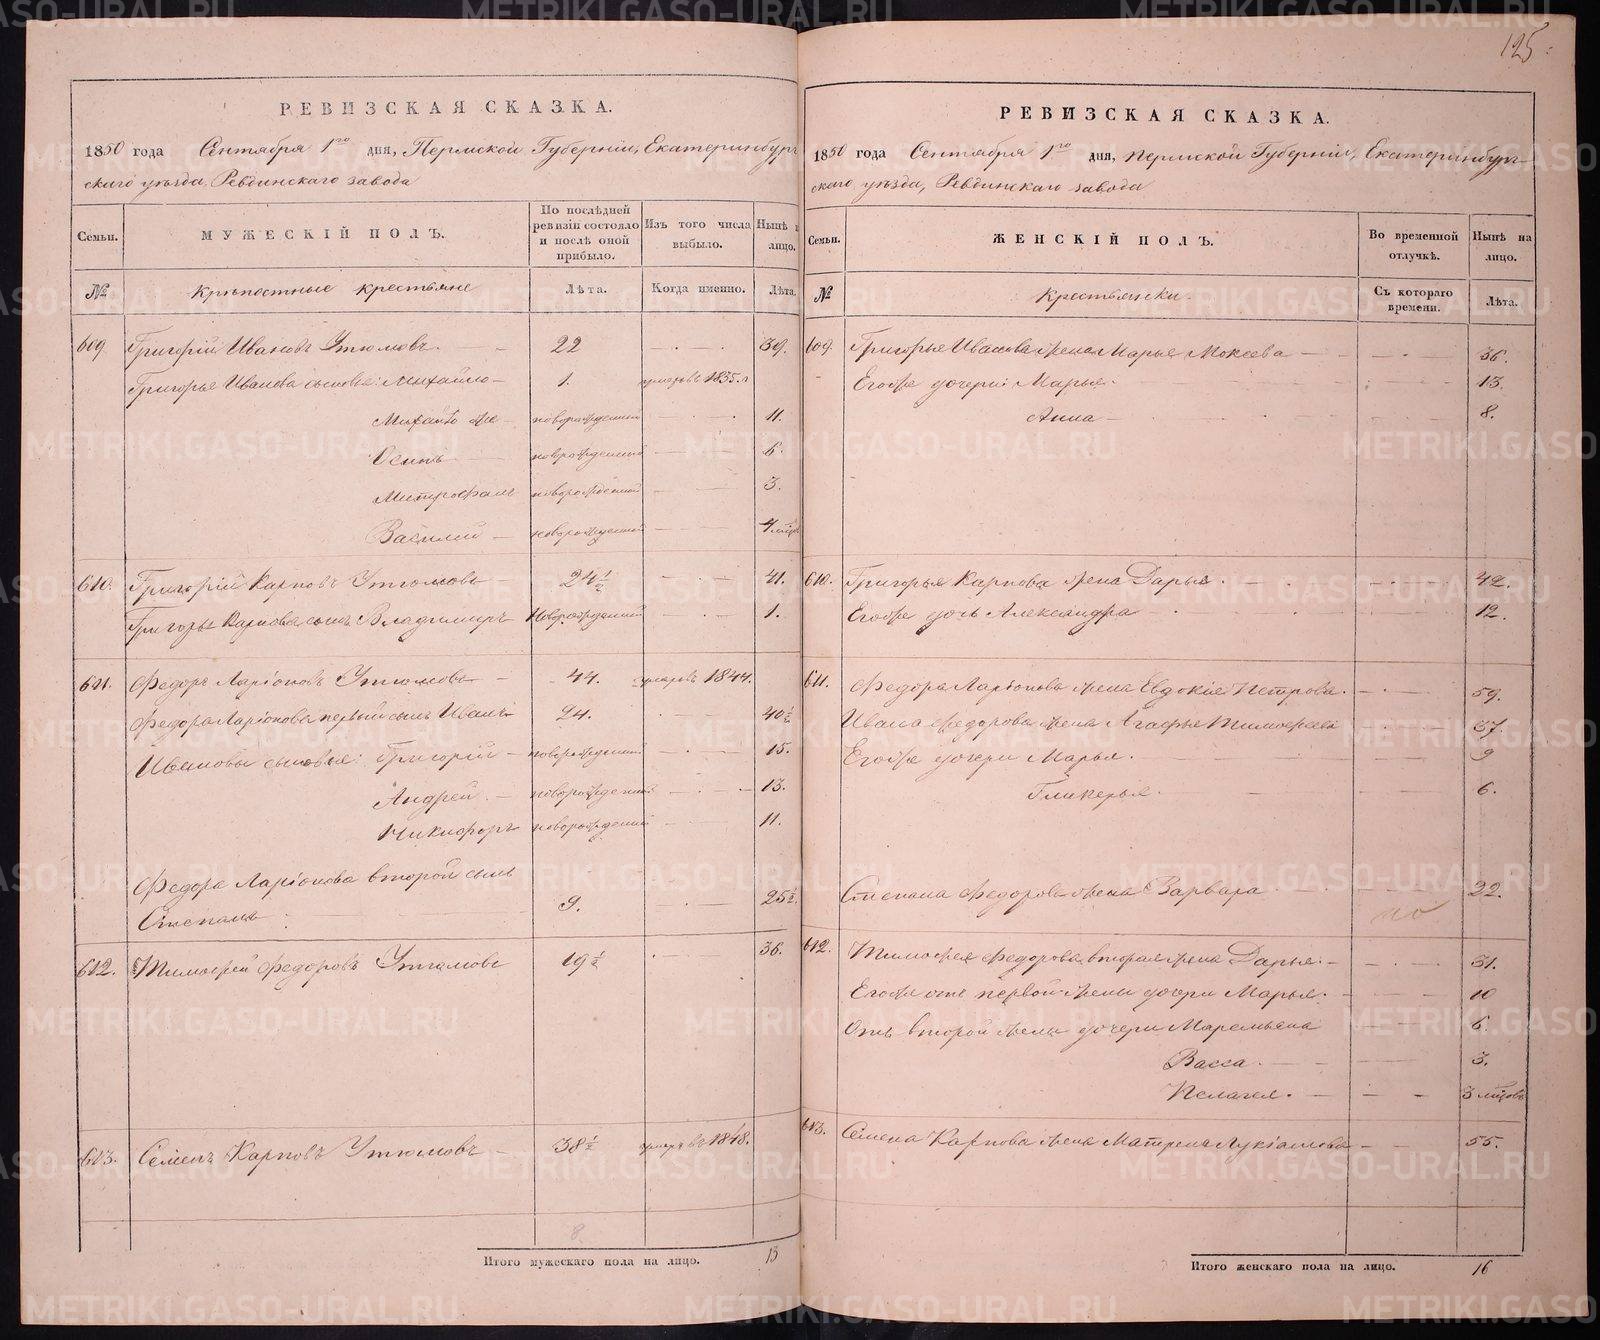 РЕВИЗСКАЯ СКАЗКА.
1850 года Сентября 1го дня, Пермской Губерніи, Екатеринбург
скаго уѣзда, Ревдинскаго завода
Семьи.
МУЖЕСКІЙ ПОЛЪ.
По послѣдней ревизіи состояло и послѣ оной прибыло.
Изъ того числа выбыло.
Нынѣ лицо.
№
Крѣпостные крестьяне
Лѣта.
Когда именно.
Лѣта.
609. Григорій Ивановъ Утюмовъ 22 39.
Григорья Иванова сыновья: Михайло 1. умеръ въ 1835.
Михайло же новорожденный 11.
Осипъ новорожденный 6.
Митрофанъ новорожденный 3.
Василий новорожденный 4
610. Григорій Карповъ Утюмовъ 24½ 41.
Григорья Карпова сынъ Владимиръ Новорожденный 1.
611. Федоръ Ларіоновъ Утюмовъ 44. умеръ въ 1844.
Федора Ларіонова первый сынъ Иванъ 24. 40½
Ивановы сыновья: Григорій новорожденный 15.
Андрей новорожденный 13.
Никифоръ новорожденный 11.
Федора Ларіонова второй сынъ
Степанъ 9. 25½
612. Тимофей Федоровъ Утюмовъ 19½ 36.
613. Семенъ Карповъ Утюмовъ 58½ умеръ въ 1848.
8
Итого мужескаго пола на лицо. 13
125
РЕВИЗСКАЯ СКАЗКА.
1850 года Сентября 1го дня, Пермской Губерніи, Екатеринбург-
скаго уѣзда, Ревдинскаго завода
Семьи.
ЖЕНСКІЙ ПОЛЪ.
Во временной отлучкѣ.
Нынѣ на лицо.
№
Крестьянки.
Съ котораго времени.
Лѣта.
609. Григорья Иванова жена Марья Мокеева 36.
Его же дочери: Марья 13.
Анна 8.
610. Григорья Карпова жена Дарья 42.
Его же дочь Александра 12.
611. Федора Ларіонова жена Евдокія Петрова 59.
Ивана Федорова жена Агафья Тимофеева 37.
Его же дочери Марья 9
Гликерья 6.
Степана Федорова жена Варвара 22.
612. Тимофея Федорова вторая жена Дарья 31.
Его же отъ первой жены дочери Марья 10
Отъ второй жены дочери Маремьяна 6.
Васса 3.
Пелагея 3 мѣсяцовъ
613. Семена Карпова жена Матрена Лукіанова 55.
Итого женскаго пола на лицо. 16
METRIKI.GASO-URAL.RU